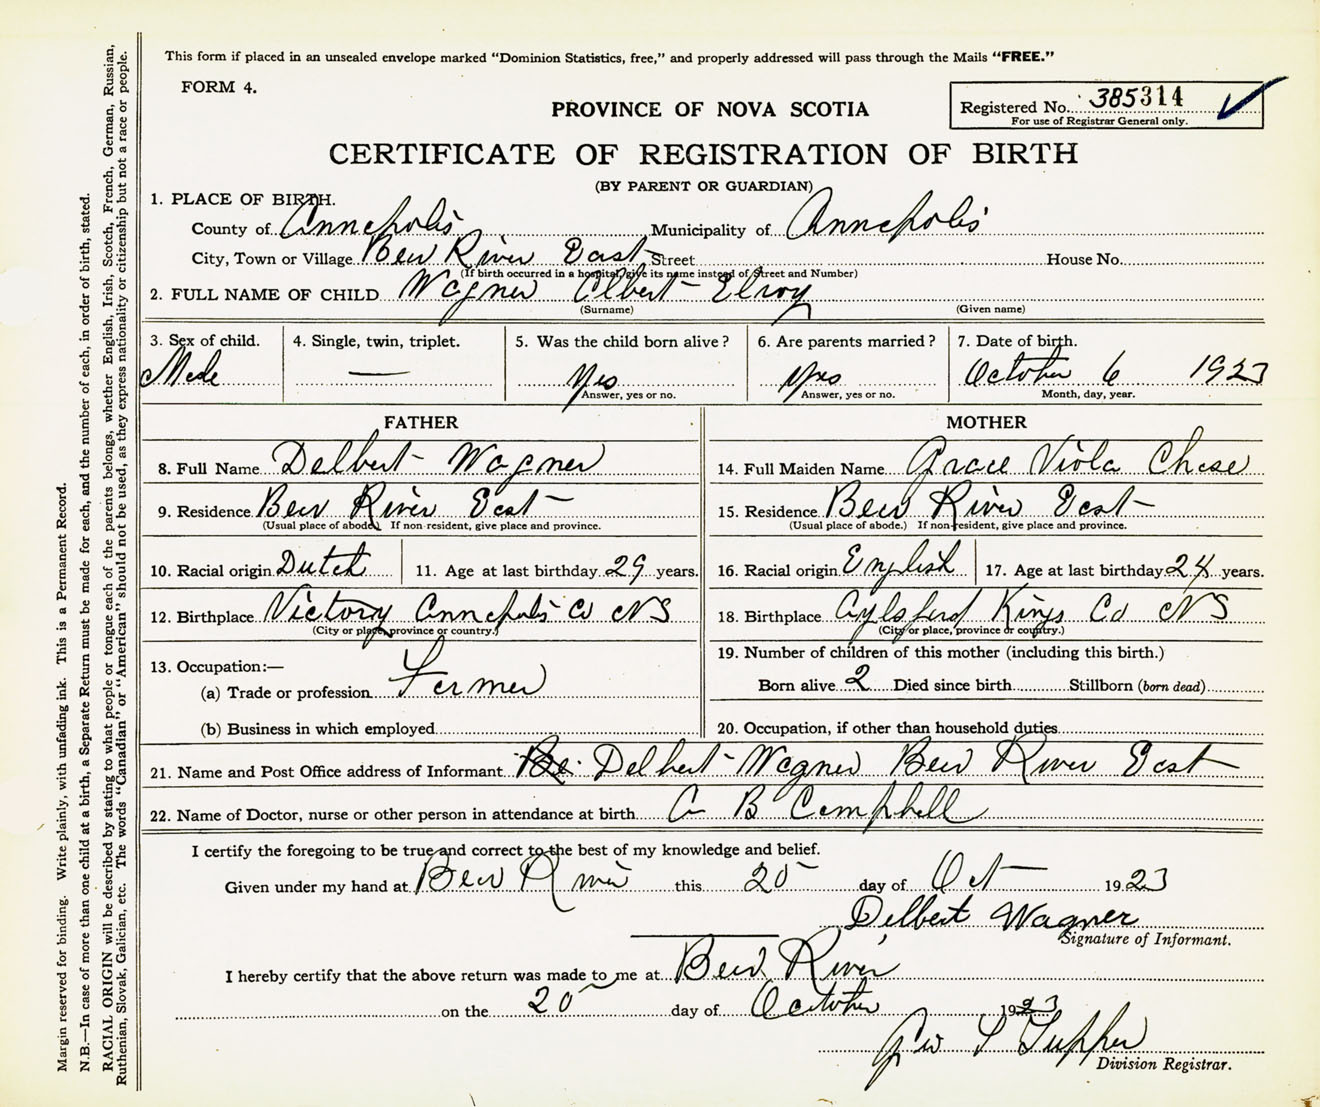 This form if placed in an unsealed envelope marked "Dominion Statistics, free," and properly addressed will pass through the Mails "FREE."
FORM 4.
PROVINCE OF NOVA SCOTIA
Registered No. 385314
For use of Registrar General only.
CERTIFICATE OF REGISTRATION OF BIRTH
(BY PARENT OR GUARDIAN)
1. PLACE OF BIRTH.
County of Annapolis Municipality of Annapolis
City, Town or Village Bear River East Street House No.
(If birth occurred in a hospital, give its name instead of Street and Number)
2. FULL NAME OF CHILD Wagner Elbert Elroy
(Surname) (Given name)
3. Sex of child. 4. Single, twin, triplet. 5. Was the child born alive? 6. Are parents married? 7. Date of birth.
Male — Yes Yes October 6 1923
Answer, yes or no. Answer, yes or no. Month, day, year.
FATHER MOTHER
8. Full Name Delbert Wagner 14. Full Maiden Name Grace Viola Chase
9. Residence Bear River East 15. Residence Bear River East
(Usual place of abode.) If non-resident, give place and province. (Usual place of abode.) If non-resident, give place and province.
10. Racial origin Dutch 11. Age at last birthday 29 years. 16. Racial origin English 17. Age at last birthday 24 years.
12. Birthplace Victory Annapolis Co NS 18. Birthplace Aylsford Kings Co NS
(City or place, province or country.) (City or place, province or country.)
13. Occupation:— 19. Number of children of this mother (including this birth.)
(a) Trade or profession Farmer Born alive 2 Died since birth Stillborn (born dead)
(b) Business in which employed 20. Occupation, if other than household duties
21. Name and Post Office address of Informant Delbert Wagner Bear River East
22. Name of Doctor, nurse or other person in attendance at birth A B Campbell
I certify the foregoing to be true and correct to the best of my knowledge and belief.
Given under my hand at Bear River this 20 day of Oct 1923
Delbert Wagner
Signature of Informant.
I hereby certify that the above return was made to me at Bear River
on the 20 day of October 1923
L Tupper
Division Registrar.
Margin reserved for binding. Write plainly, with unfading ink. This is a Permanent Record.
N.B.—In case of more than one child at a birth, a Separate Return must be made for each, and the number of each, in order of birth, stated.
RACIAL ORIGIN will be described by stating to what people or tongue each of the parents belongs, whether English, Irish, Scotch, French, German, Russian,
Ruthenian, Slovak, Galician, etc. The words "Canadian" or "American" should not be used, as they express nationality or citizenship but not a race or people.